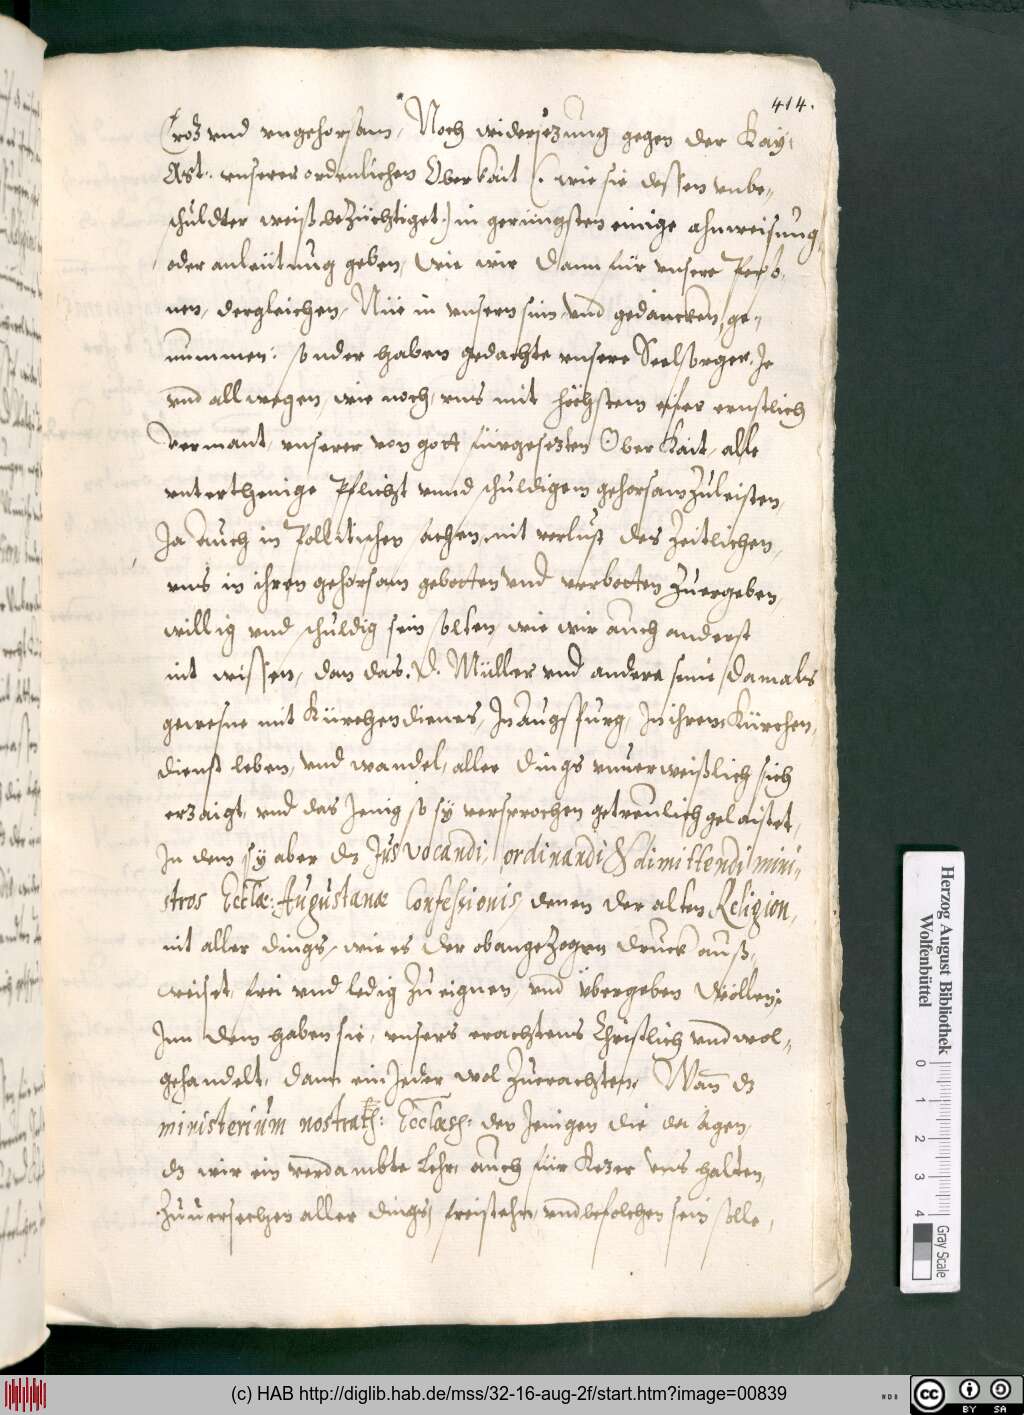 414.
Troz vnd vngehorsam, Noch widersezung gegen der Kay:
Mst. vnserer ordenlichen Oberkait (. wie sie dessen vnbe„
schuldter weiß bezüchtiget.) in geringsten einige ahnweisung
oder anleütung geben, wie wir dann für vnsere Perso„
nen, dergleichen, Nie in vnsern sin, vnd gedancken, ge„
nummen: sonder haben gedachte vnsere Seelsorger, Je
vnd allwegen, wie noch, vns mit höchstem eifer ernstlich
vermant, vnserer von gott fürgesezten Oberkait, alle
vnterthenige Pflicht vnnd schuldigem gehorsam zuleisten,
Ja auch in Pollitischen sachen, mit verlust des Zeitlichen,
vns in ihren gehorsam gebotten vnd verbotten zuergeben,
willig vnd schuldig sein solten, wie wir auch anderst
nit wissen, dan das. D. Müller vnd andere seine damals
gewesne mit Kürchendiener, In Augspurg, In ihrem Kürchen„
dienst leben, vnd wandel, aller dings vnuerweißlich sich
erzaigt, vnd das Jenig so sy versprochen getreulich gelaistet,
In dem sy aber dz Jus vocandi, ordinandi & dimittendi mini„
stros Eccłæ: Augustanæ Confessionis, denen der alten Religion,
nit aller dings, wie es der obangezogen druck auß„
weiset, frei vnd ledig zueignen, vnd übergeben wöllen;
Inn dem haben sie, vnsers erachtens Christlich vnd wol„
gehandelt, dann ein Jeder wol zuerachten, Wan dz
ministerium nostrath: Ecclæs: den Jenigen die da sagen,
dz wir ein verdambte Lehr, auch für Kezer vns halten,
zuuersechen aller dings, freistehn, vnd befolchen sein solle,
Herzog August Bibliothek
Wolfenbüttel
0 1 2 3 4
Gray Scale
(c) HAB http://diglib.hab.de/mss/32-16-aug-2f/start.htm?image=00839
WDB
cc BY SA